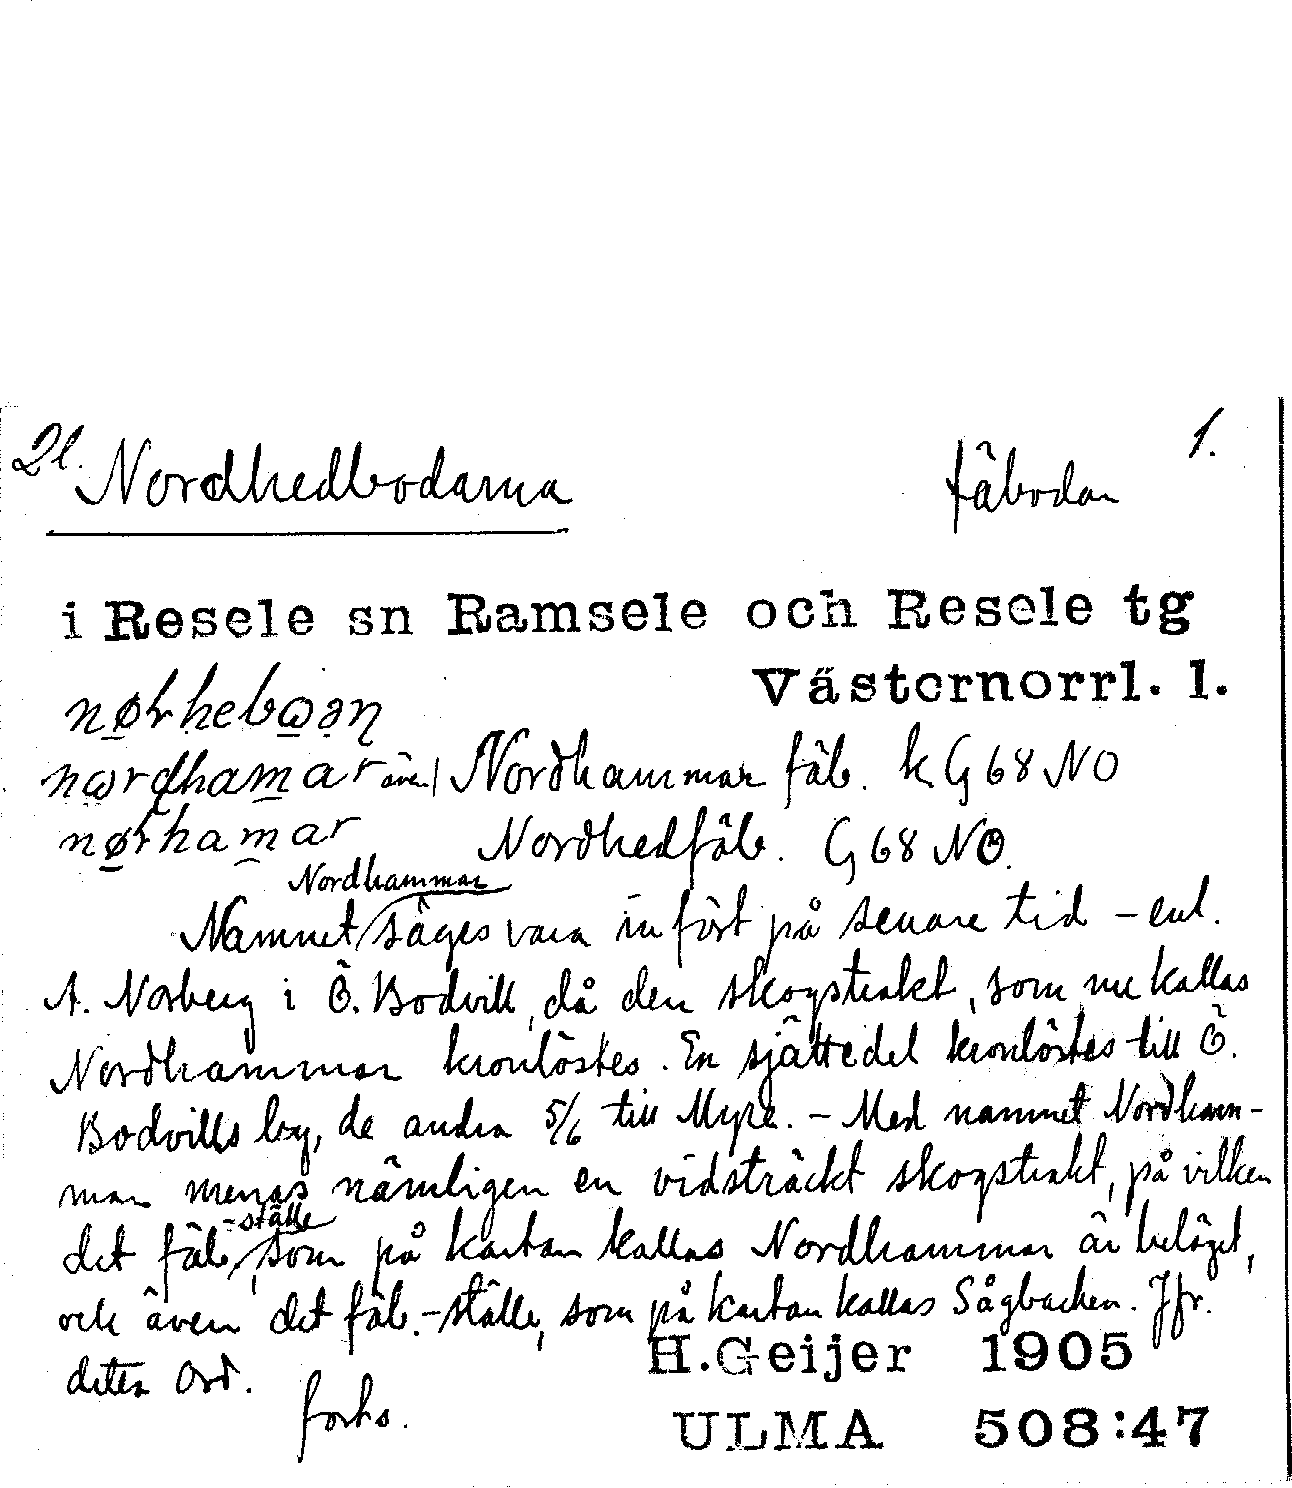 21. Nordhedbodarna fäbodar 1.
i Resele sn Ramsele och Resele tg
Västernorrl. l.
Nordhammar fäb. k G 68 NO
Nordhedfäb. G 68 NO.
Nordhammar
Namnet säges vara infört på senare tid – enl.
A. Norberg i Ö. Bodvill, då den skogstrakt, som nu kallas
Nordhammar kronlöstes. En sjättedel kronlöstes till Ö.
Bodvills by, de andra 5/6 till Myre. – Med namnet Nordham-
mar menas nämligen en vidsträckt skogstrakt, på vilken
-ställe
det fäb, som på kartan kallas Nordhammar är beläget,
och även det fäb.-ställe, som på kartan kallas Sågbacken. Jfr.
detta ord.
forts.
H.Geijer 1905
ULMA 508:47